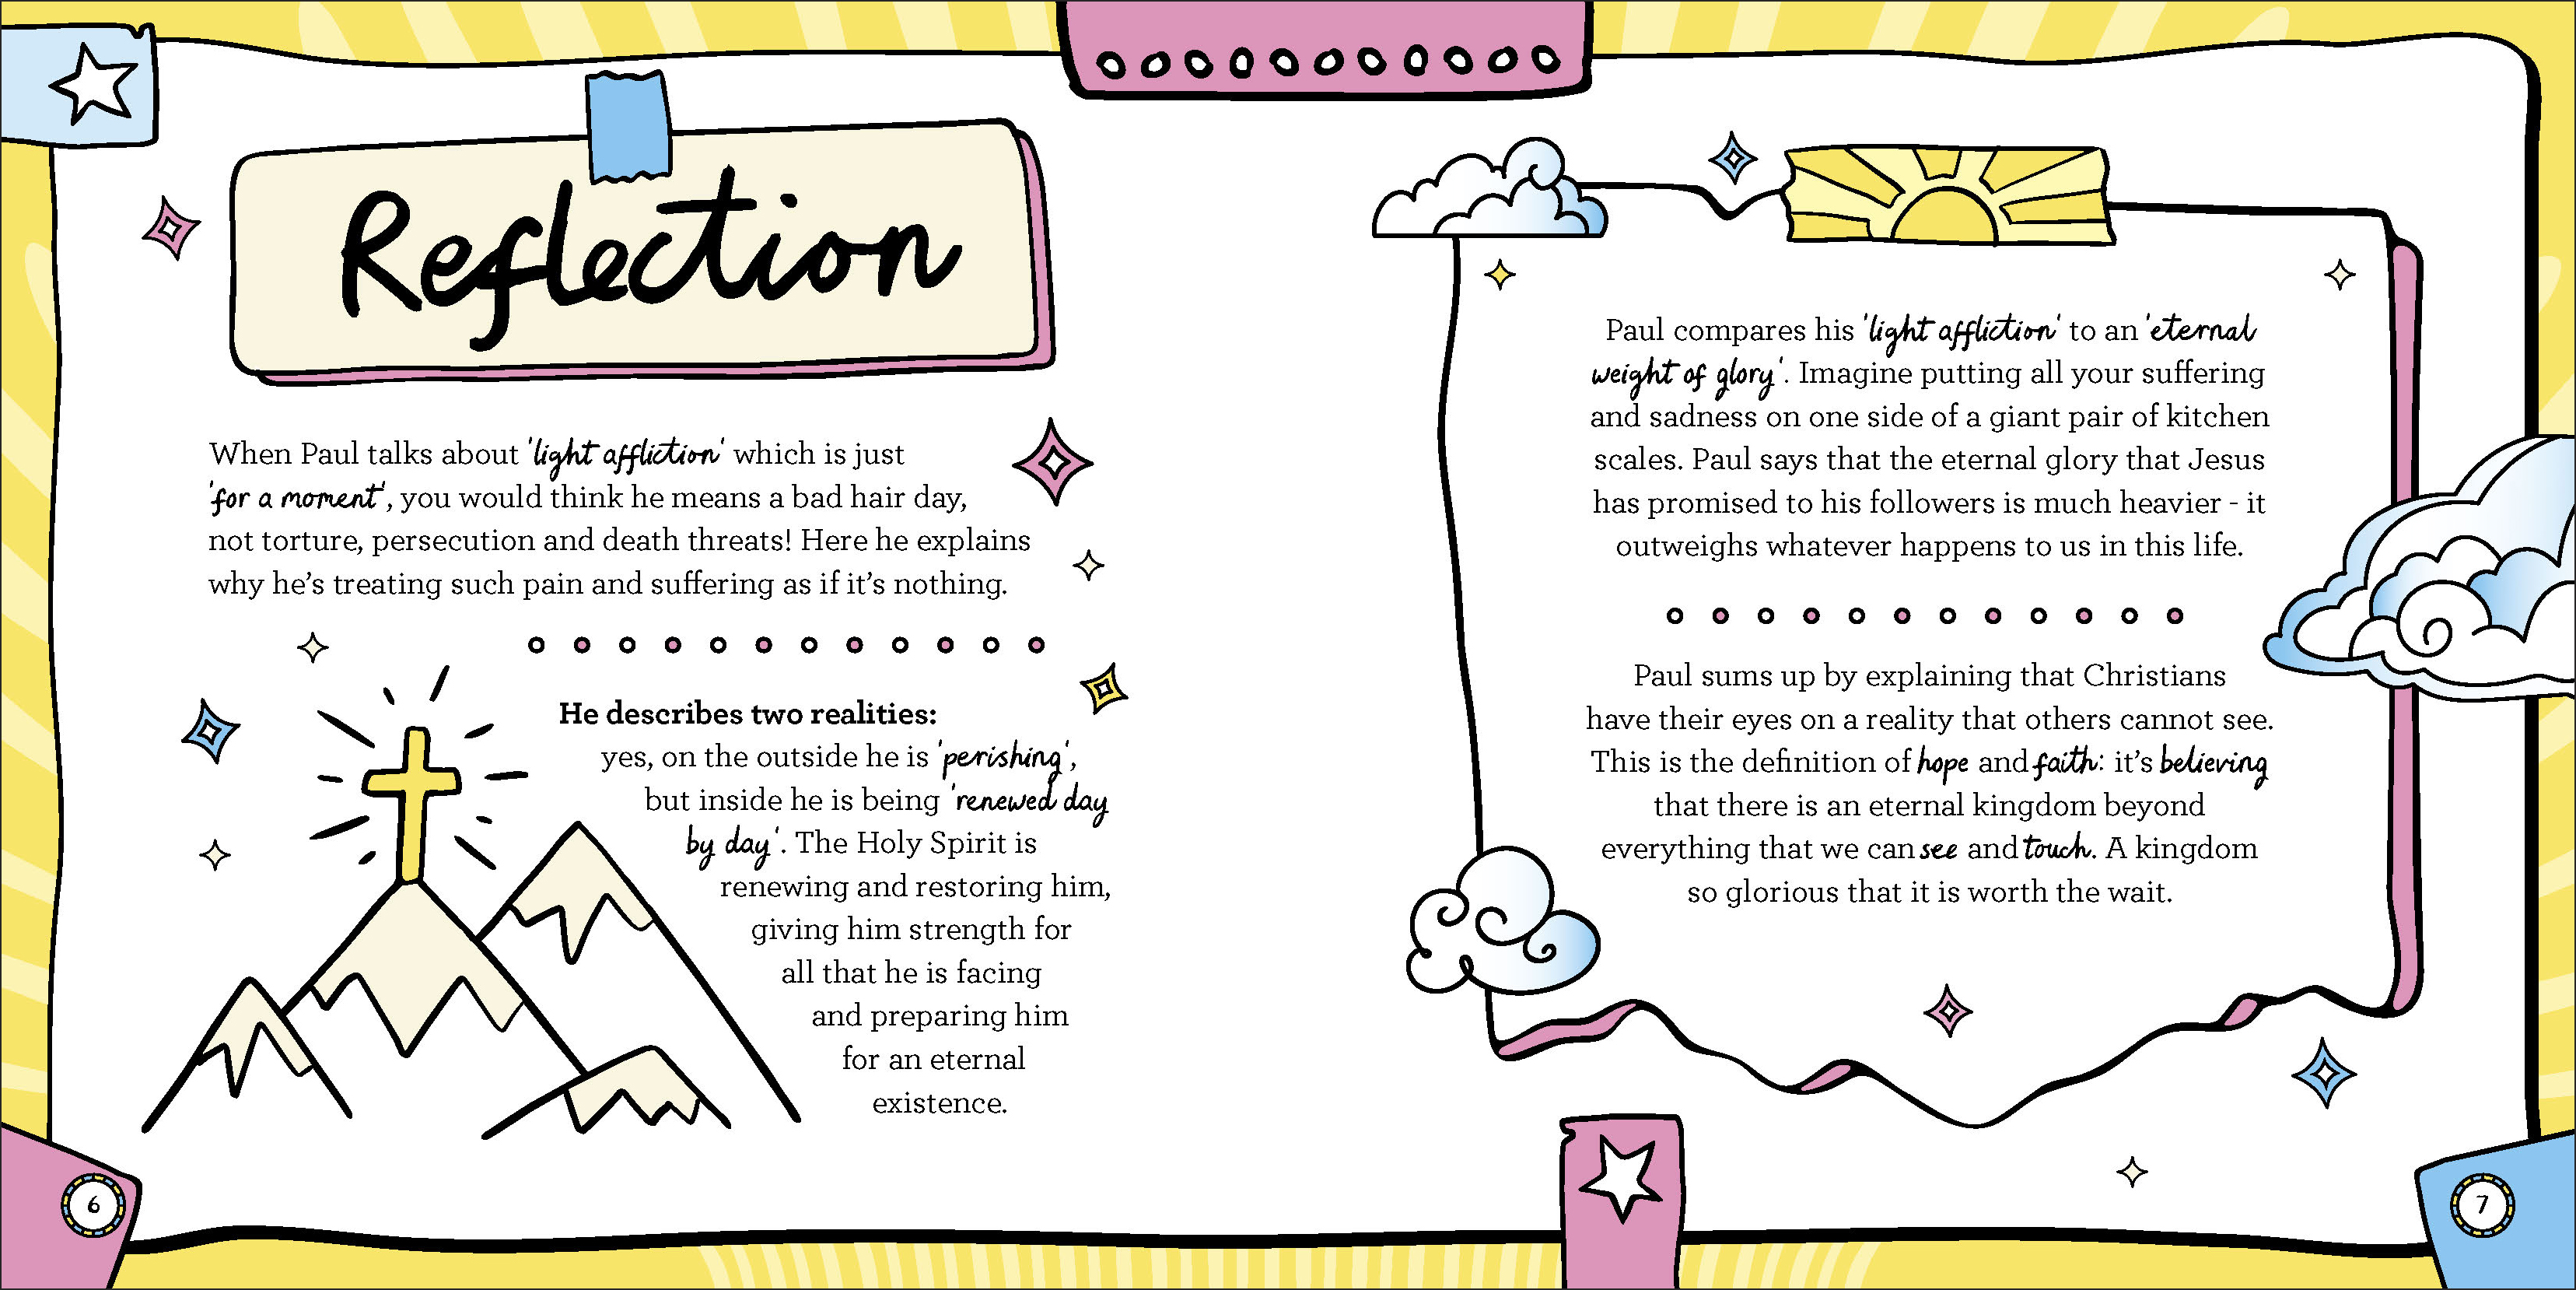 Reflection
When Paul talks about 'light affliction' which is just
'for a moment', you would think he means a bad hair day,
not torture, persecution and death threats! Here he explains
why he’s treating such pain and suffering as if it’s nothing.
He describes two realities:
yes, on the outside he is 'perishing',
but inside he is being 'renewed day
by day'. The Holy Spirit is
renewing and restoring him,
giving him strength for
all that he is facing
and preparing him
for an eternal
existence.
6
Paul compares his 'light affliction' to an 'eternal
weight of glory'. Imagine putting all your suffering
and sadness on one side of a giant pair of kitchen
scales. Paul says that the eternal glory that Jesus
has promised to his followers is much heavier - it
outweighs whatever happens to us in this life.
Paul sums up by explaining that Christians
have their eyes on a reality that others cannot see.
This is the definition of hope and faith: it’s believing
that there is an eternal kingdom beyond
everything that we can see and touch. A kingdom
so glorious that it is worth the wait.
7